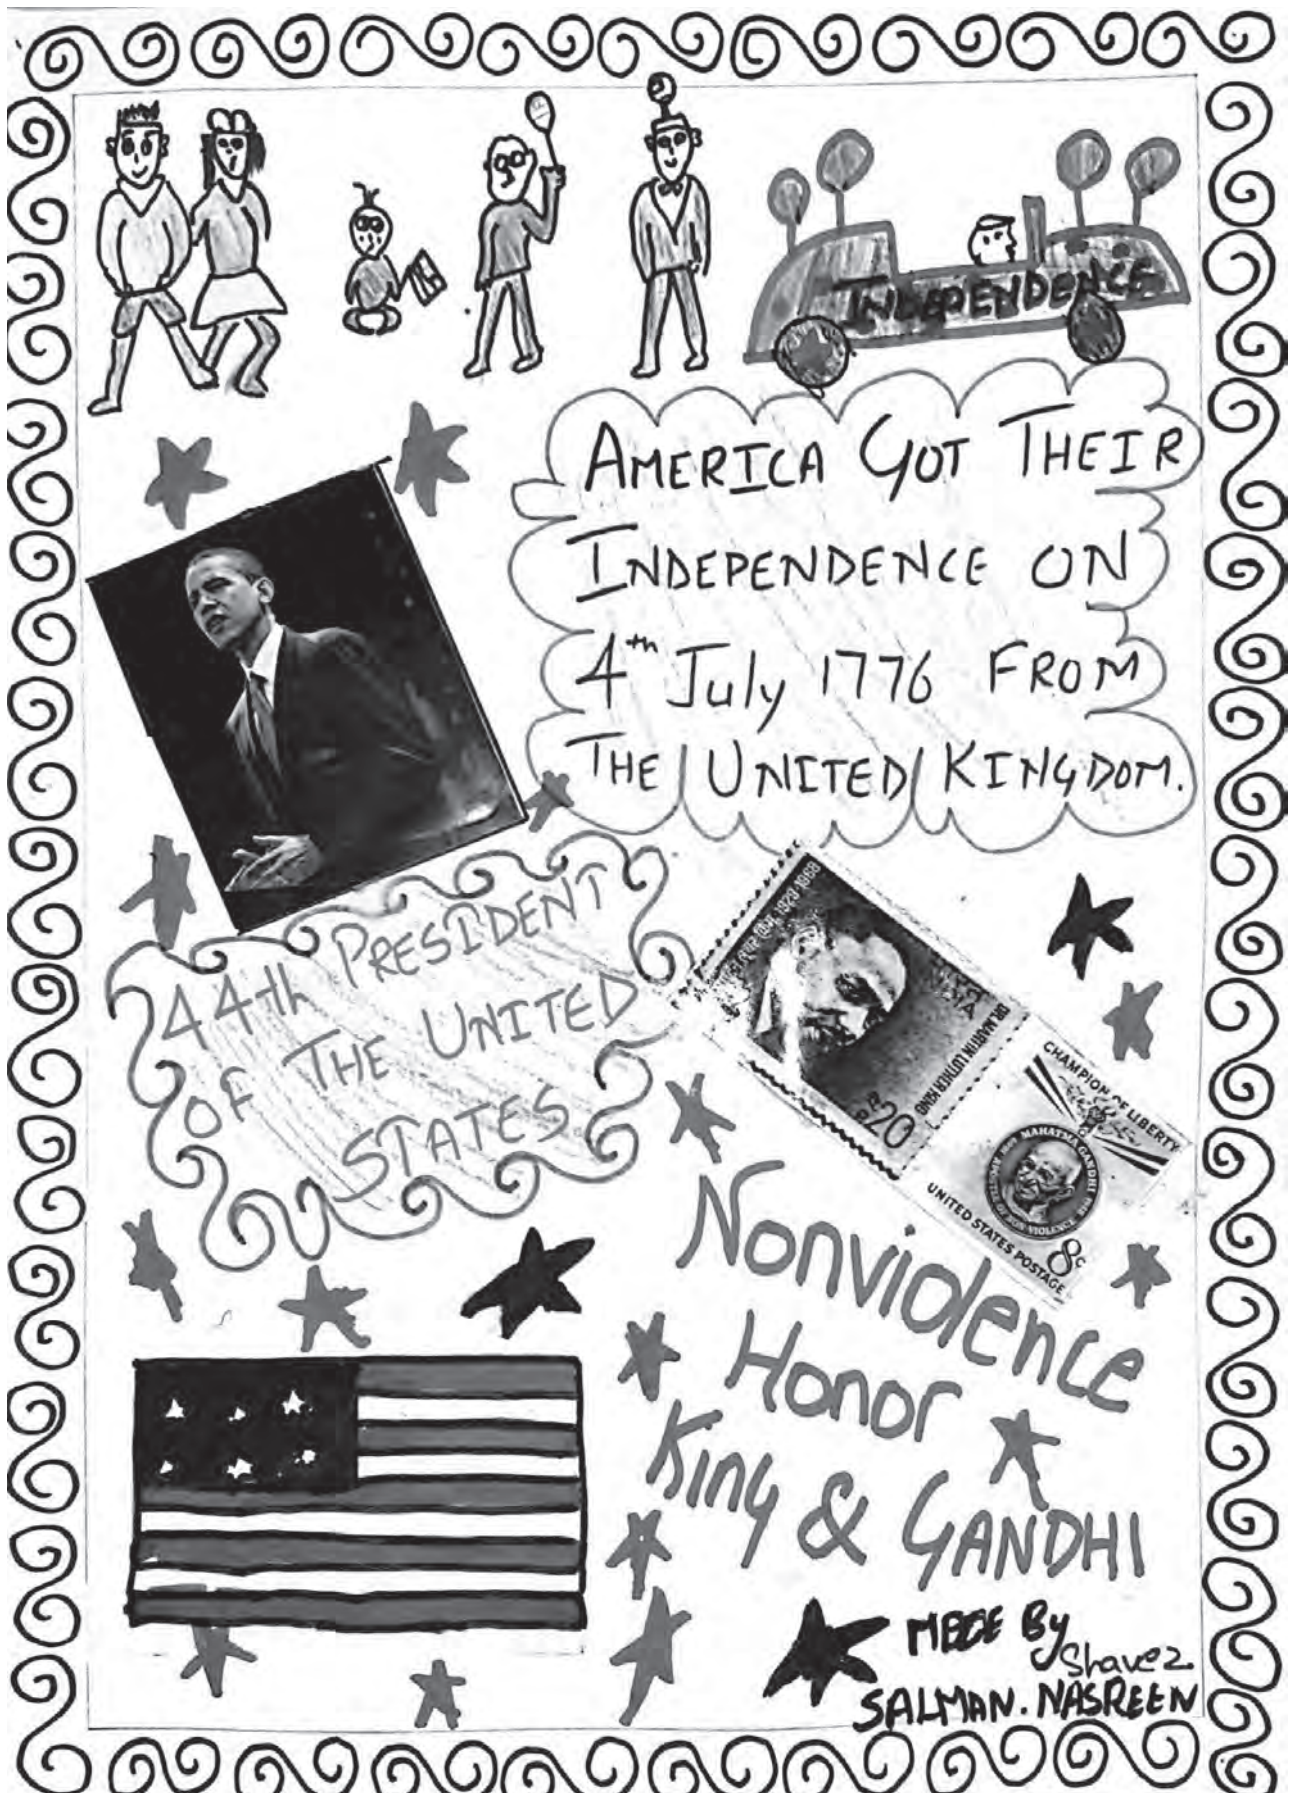 INDEPENDENCE
AMERICA GOT THEIR
INDEPENDENCE ON
4th July 1776 FROM
THE UNITED KINGDOM.
44th PRESIDENT
OF THE UNITED
STATES.
1929-1968
DR. MARTIN LUTHER KING
20
CHAMPION OF LIBERTY
MAHATMA GANDHI
OF NON-VIOLENCE
UNITED STATES POSTAGE
8c
Nonviolence
Honor
King & GANDHI
MEDE By
Shavez
SALMAN. NASREEN